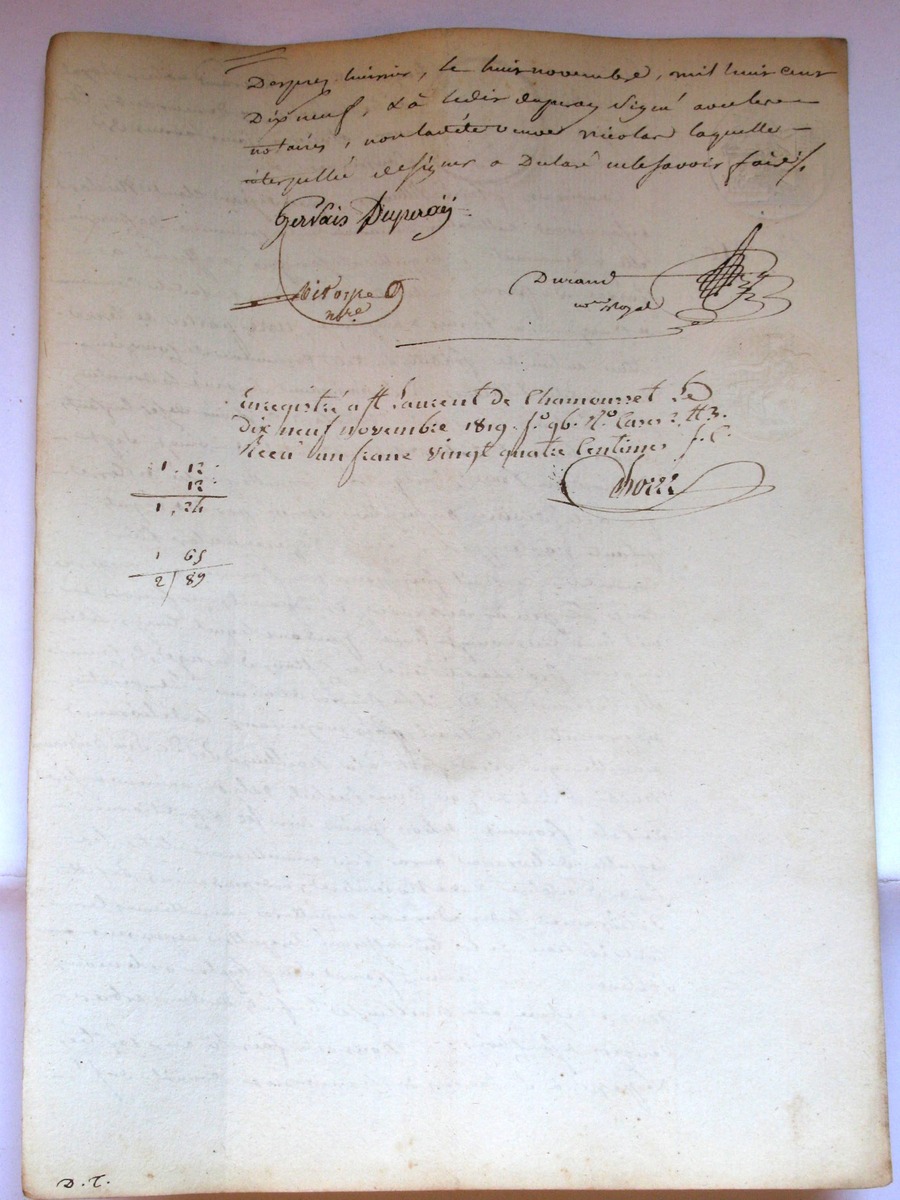 huissier, le huit novembre, mil huit cent
Dix neuf, & à ledit duperay Signé avec les
notaires, non ladite veuve nicolas laquelle
interpellée de signer a Declaré ne le savoir faire
Gervais Duperaÿ
nore
Durand
nre Royal
Enregistré a St Laurent de Chamousset Le
Dix neuf novembre 1819. fo. 96. Ro. Case 2. tt 3.
Recu un franc vingt quatre Centimes
1. 12
12
1, 24
1 65
2 89
D. T.